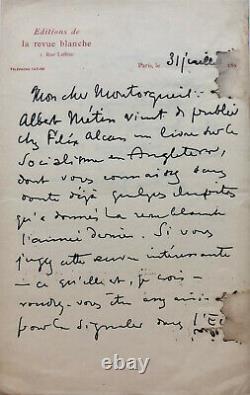 Editions de
la revue blanche
1 Rue Laffitte
Paris, le 31 juillet 189
Mon cher Montorgueil -
Albert Métin vient de publier
chez Félix Alcan un livre sur le
Socialisme en Angleterre,
dont vous connaissez sans
doute déjà quelques
qu'a donnés La revue blanche
l'année dernière. Si vous
jugez cette œuvre intéressante
- ce qu'elle est, je crois -
voudrez-vous être assez
pour la signaler dans l'
ebay